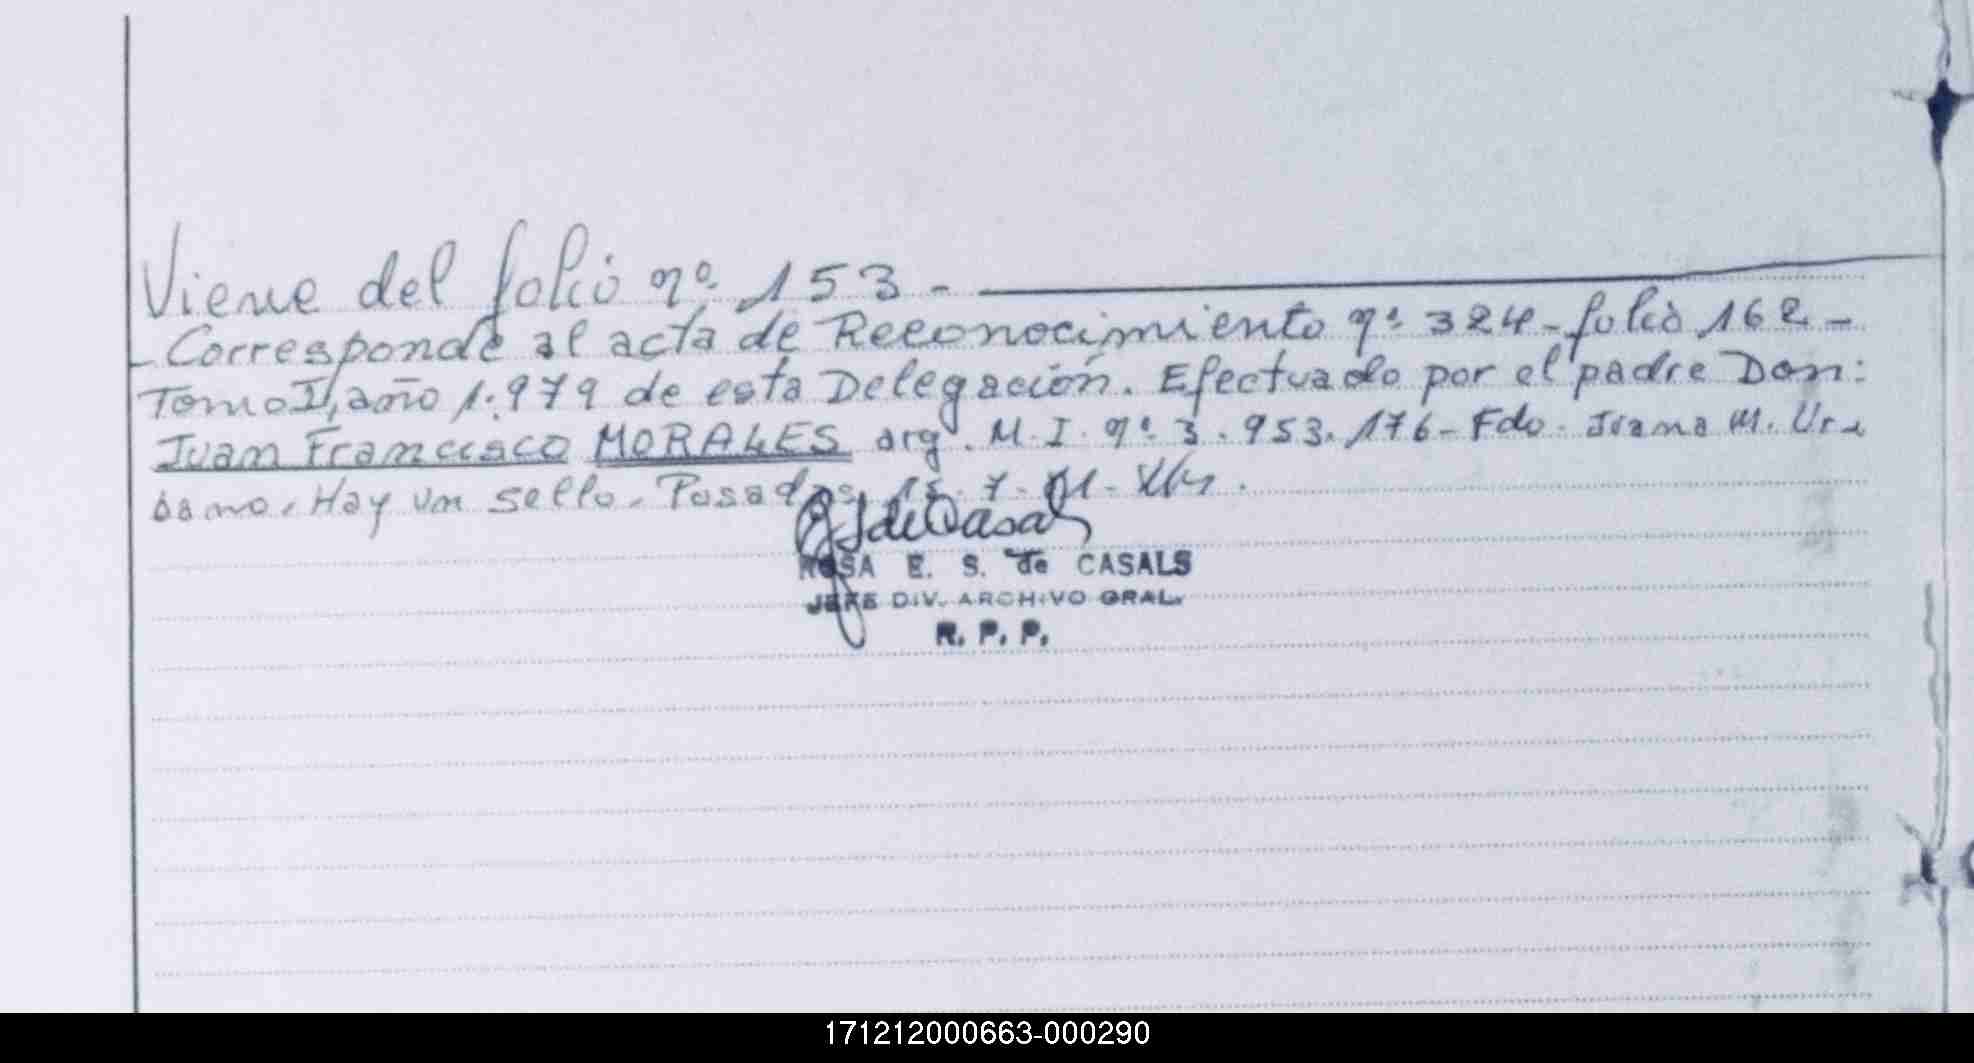 Viene del folio nº 153 -
- Corresponde al acta de Reconocimiento nº 324 - folio 162 -
Tomo I, año 1.979 de esta Delegación. Efectuado por el padre Don:
Juan Francisco MORALES arg. M.I. nº 3.953.176 - Fdo. Juana M. Ur-
bano. Hay un sello. Posadas, 7-
ROSA E. S. de CASALS
JEFE DIV. ARCHIVO GRAL.
R. P. P.
171212000663-000290